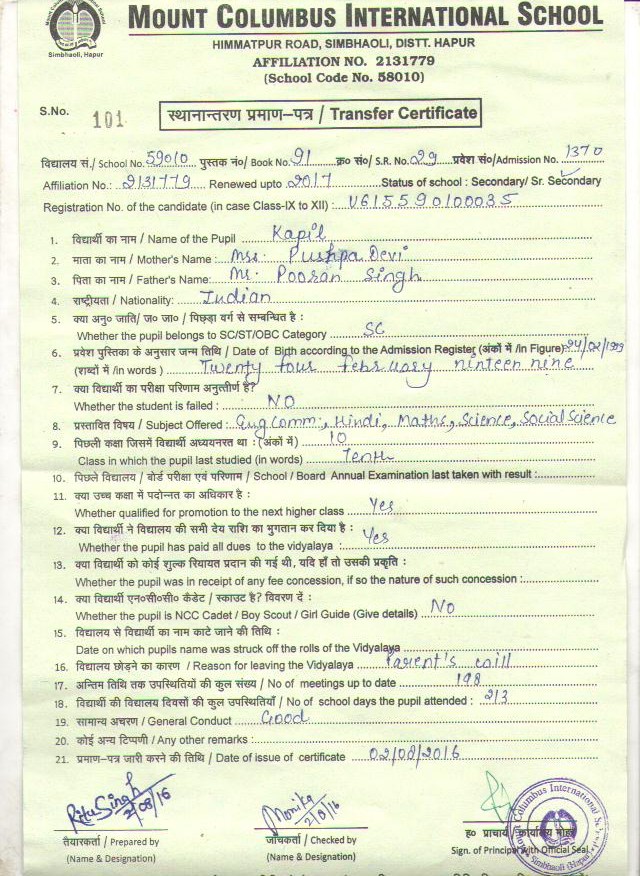 Mount Columbus International School
Simbhaoli, Hapur
HIMMATPUR ROAD, SIMBHAOLI, DISTT. HAPUR
AFFILIATION NO. 2131779
(School Code No. 58010)
S.No. 101
स्थानान्तरण प्रमाण-पत्र / Transfer Certificate
विद्यालय सं./ School No. 59010 पुस्तक नं०/ Book No. 91 क्र० सं०/ S.R. No. 29 प्रवेश सं०/Admission No. 1370
Affiliation No.: 2131779 Renewed upto 2017 Status of school : Secondary/ Sr. Secondary
Registration No. of the candidate (in case Class-IX to XII) : U615590100035
1. विद्यार्थी का नाम / Name of the Pupil Kapil
2. माता का नाम / Mother's Name : Mrs. Pushpa Devi
3. पिता का नाम / Father's Name: Mr. Pooran Singh
4. राष्ट्रीयता / Nationality: Indian
5. क्या अनु० जाति/ ज० जा० / पिछड़ा वर्ग से सम्बन्धित है :
Whether the pupil belongs to SC/ST/OBC Category SC
6. प्रवेश पुस्तिका के अनुसार जन्म तिथि / Date of Birth according to the Admission Register (अंकों में /in Figure) 24/02/1999
(शब्दों में /in words ) Twenty four february ninteen nine
7. क्या विद्यार्थी का परीक्षा परिणाम अनुत्तीर्ण है?
Whether the student is failed : NO
8. प्रस्तावित विषय / Subject Offered : Eng Comm., Hindi, Maths, Science, Social Science
9. पिछली कक्षा जिसमें विद्यार्थी अध्ययनरत था : (अंकों में ) 10
Class in which the pupil last studied (in words) Tenth
10. पिछले विद्यालय / बोर्ड परीक्षा एवं परिणाम / School / Board Annual Examination last taken with result :
11. क्या उच्च कक्षा में पदोन्नत का अधिकार है :
Whether qualified for promotion to the next higher class Yes
12. क्या विद्यार्थी ने विद्यालय की सभी देय राशि का भुगतान कर दिया है :
Whether the pupil has paid all dues to the vidyalaya : Yes
13. क्या विद्यार्थी को कोई शुल्क रियायत प्रदान की गई थी, यदि हाँ तो उसकी प्रकृति :
Whether the pupil was in receipt of any fee concession, if so the nature of such concession :
14. क्या विद्यार्थी एन०सी०सी० कैडेट / स्काउट है? विवरण दें :
Whether the pupil is NCC Cadet / Boy Scout / Girl Guide (Give details) NO
15. विद्यालय से विद्यार्थी का नाम काटे जाने की तिथि :
Date on which pupils name was struck off the rolls of the Vidyalaya
16. विद्यालय छोड़ने का कारण / Reason for leaving the Vidyalaya Parent's will
17. अन्तिम तिथि तक उपस्थितियों की कुल संख्य / No of meetings up to date 198
18. विद्यार्थी की विद्यालय दिवसों की कुल उपस्थितियाँ / No of school days the pupil attended : 213
19. सामान्य अचरण / General Conduct Good
20. कोई अन्य टिप्पणी / Any other remarks :
21. प्रमाण-पत्र जारी करने की तिथि / Date of issue of certificate 02/08/2016
Ritu Singh 2/08/16
Monika 2/8/16
Mount Columbus International School
Simbhaoli (Hapur)
तैयारकर्ता / Prepared by
(Name & Designation)
जाँचकर्ता / Checked by
(Name & Designation)
ह० प्राचार्य कार्यालय मोहर
Sign. of Principal with Official Seal